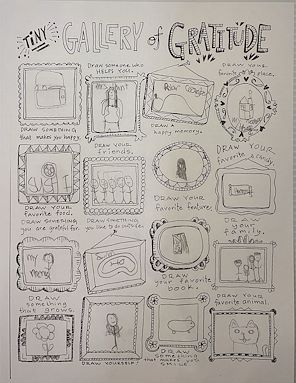 TINY GALLERY of GRATITUDE
DRAW SOMEONE WHO
HELPS YOU.
DRAW YOUR
DRAW SOMETHING
that makes you happy.
DRAW A
happy memory.
DRAW
YOUR
friends.
DRAW YOUR
favorite candy.
DRAW YOUR
favorite food.
DRAW YOUR
favorite feature.
DRAW SOMETHING
you are grateful for.
DRAW SOMETHING
you like to do outside.
DRAW
YOUR
family.
my
DRAW
your favorite
book.
DRAW
something
that grows.
DRAW YOUR
favorite animal.
DRAW YOURSELF!
DRAW
something
SMILE.